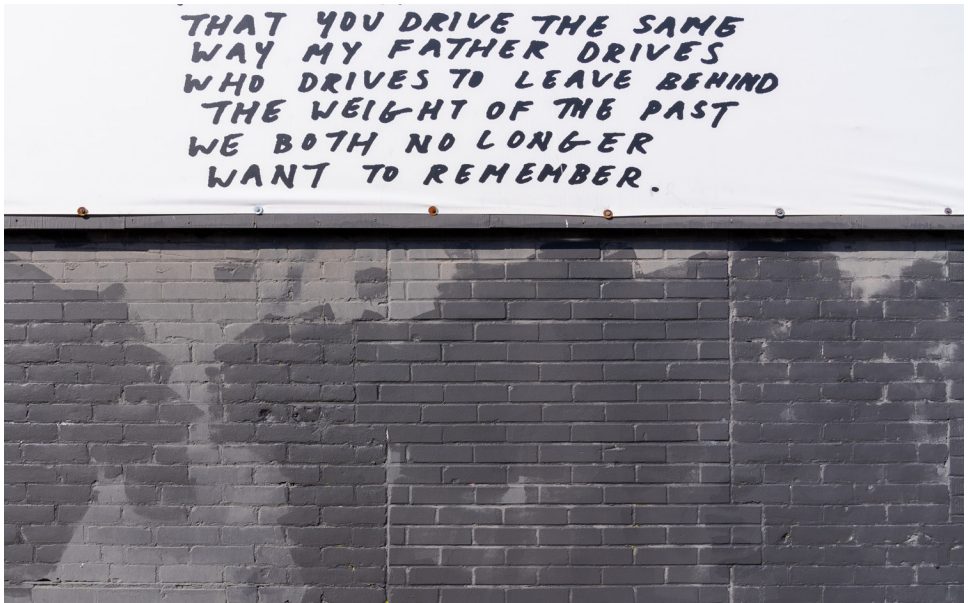 THAT YOU DRIVE THE SAME
WAY MY FATHER DRIVES
WHO DRIVES TO LEAVE BEHIND
THE WEIGHT OF THE PAST
WE BOTH NO LONGER
WANT TO REMEMBER.